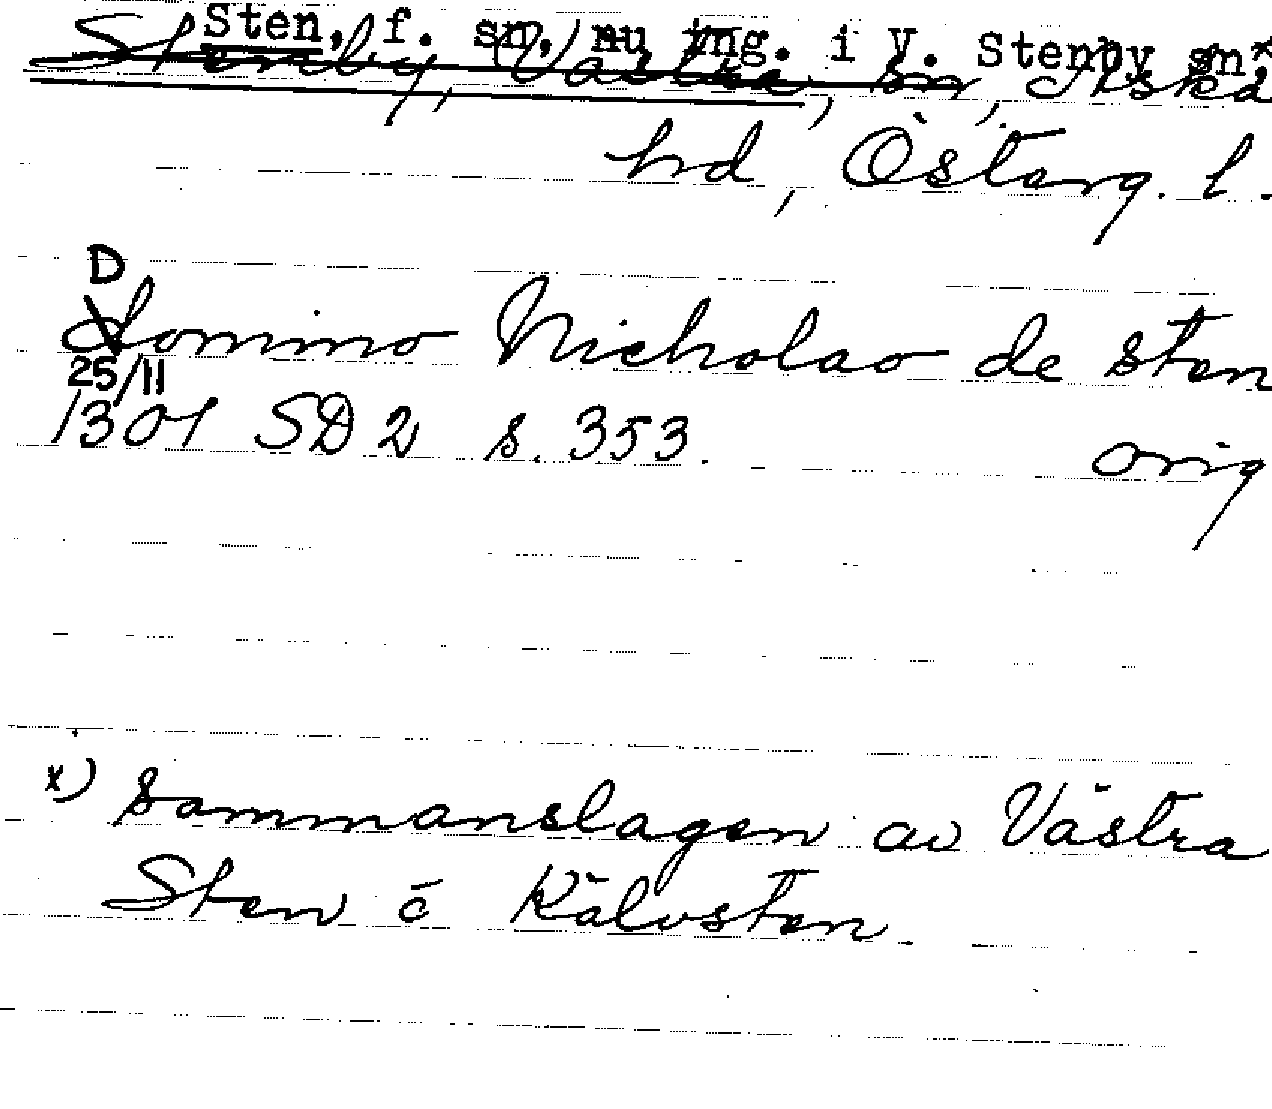 Sten, f. sn, nu ing. i V. Stenby sn*
Stenby, Västra, sn, Aska
hd, Österg. l.
D
domino Nicholao de Sten
25/11
1301 SD 2 s. 353.
orig
x) Sammanslagen av Västra
Sten o Kälvsten.